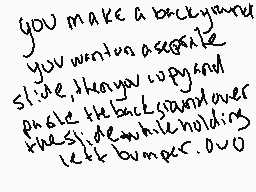 you make a background
you want on a seperate
slide, then you copy and
paste the background over
the slide while holding
left bumper. OvO